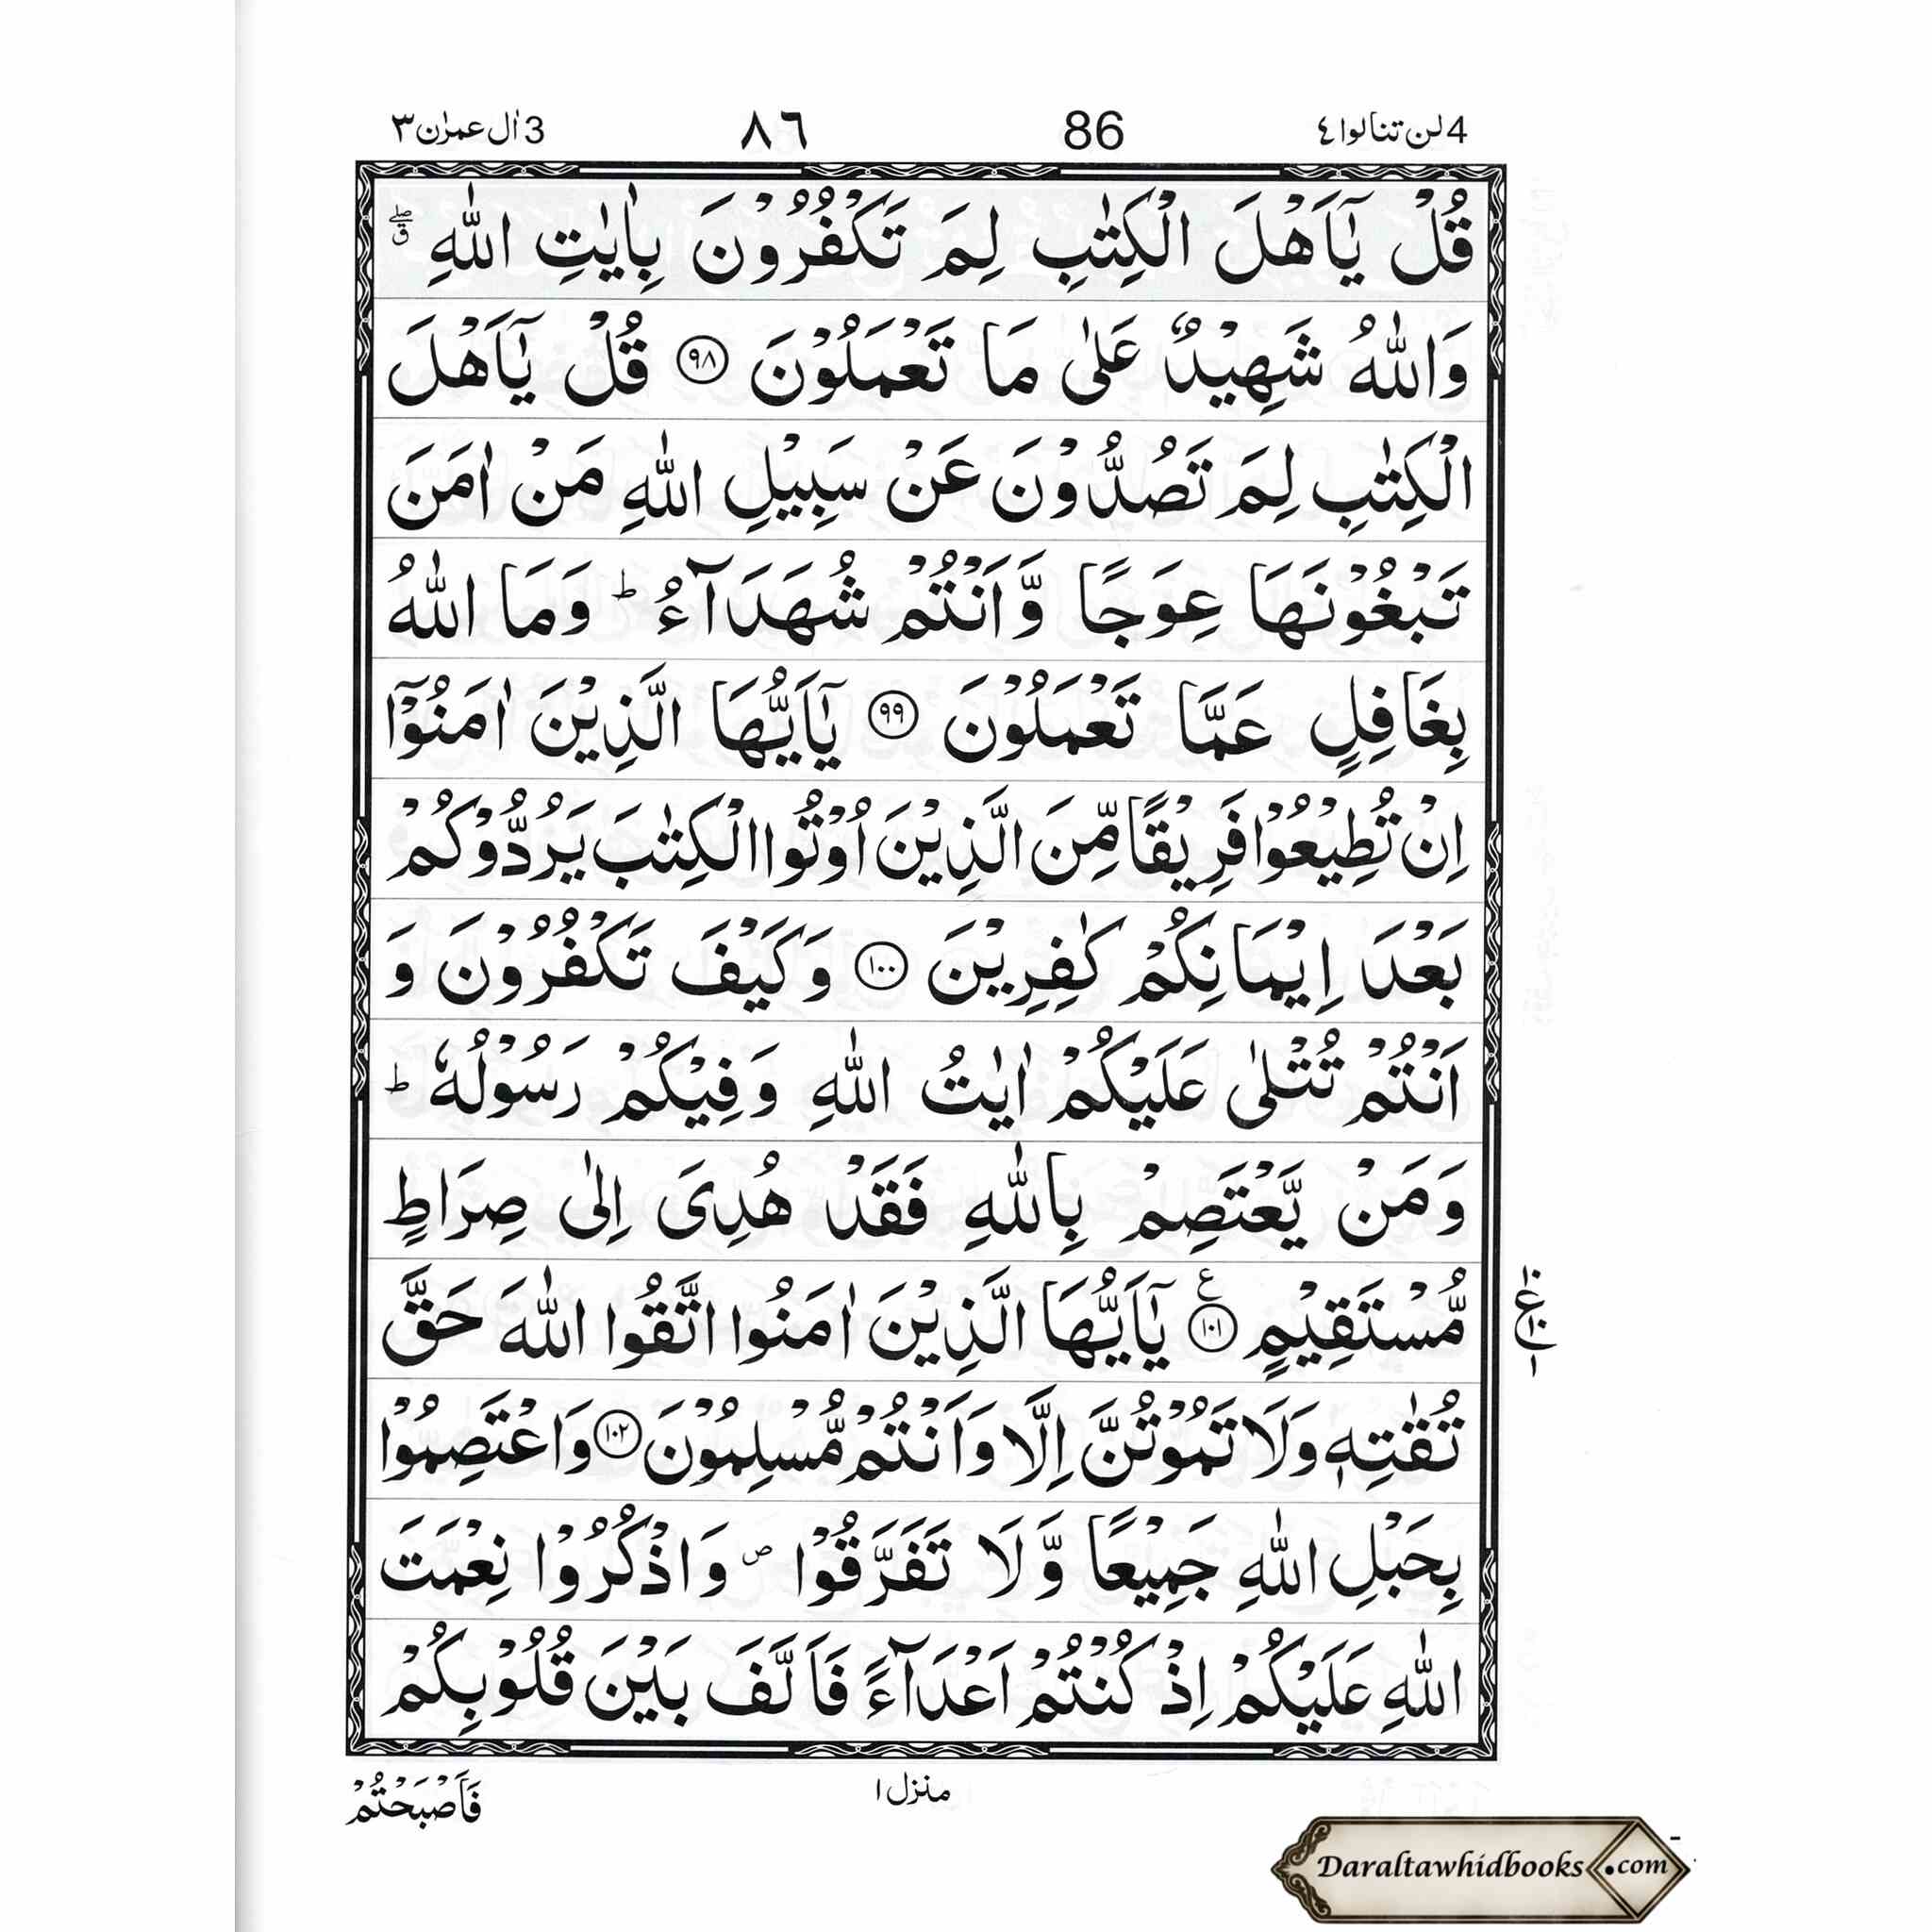 4 لن تنالوا ٤ 86 ٨٦ 3 اٰل عمرٰن ٣
قُلْ يٰٓاَهْلَ الْكِتٰبِ لِمَ تَكْفُرُوْنَ بِاٰيٰتِ اللّٰهِ ۖق
وَاللّٰهُ شَهِيْدٌ عَلٰى مَا تَعْمَلُوْنَ ﴿٩٨﴾ قُلْ يٰٓاَهْلَ
الْكِتٰبِ لِمَ تَصُدُّوْنَ عَنْ سَبِيْلِ اللّٰهِ مَنْ اٰمَنَ
تَبْغُوْنَهَا عِوَجًا وَّاَنْتُمْ شُهَدَآءُ ؕ وَمَا اللّٰهُ
بِغَافِلٍ عَمَّا تَعْمَلُوْنَ ﴿٩٩﴾ يٰٓاَيُّهَا الَّذِيْنَ اٰمَنُوْٓا
اِنْ تُطِيْعُوْا فَرِيْقًا مِّنَ الَّذِيْنَ اُوْتُوا الْكِتٰبَ يَرُدُّوْكُمْ
بَعْدَ اِيْمَانِكُمْ كٰفِرِيْنَ ﴿١٠٠﴾ وَكَيْفَ تَكْفُرُوْنَ وَ
اَنْتُمْ تُتْلٰى عَلَيْكُمْ اٰيٰتُ اللّٰهِ وَفِيْكُمْ رَسُوْلُهٗ ؕ
وَمَنْ يَّعْتَصِمْ بِاللّٰهِ فَقَدْ هُدِىَ اِلٰى صِرَاطٍ
مُّسْتَقِيْمٍ ﴿١٠١﴾ ع يٰٓاَيُّهَا الَّذِيْنَ اٰمَنُوا اتَّقُوا اللّٰهَ حَقَّ
تُقٰتِهٖ وَلَا تَمُوْتُنَّ اِلَّا وَاَنْتُمْ مُّسْلِمُوْنَ ﴿١٠٢﴾ وَاعْتَصِمُوْا
بِحَبْلِ اللّٰهِ جَمِيْعًا وَّلَا تَفَرَّقُوْا ص وَاذْكُرُوْا نِعْمَتَ
اللّٰهِ عَلَيْكُمْ اِذْ كُنْتُمْ اَعْدَآءً فَاَلَّفَ بَيْنَ قُلُوْبِكُمْ
منزل ١
فَاَصْبَحْتُمْ
Daraltawhidbooks.com